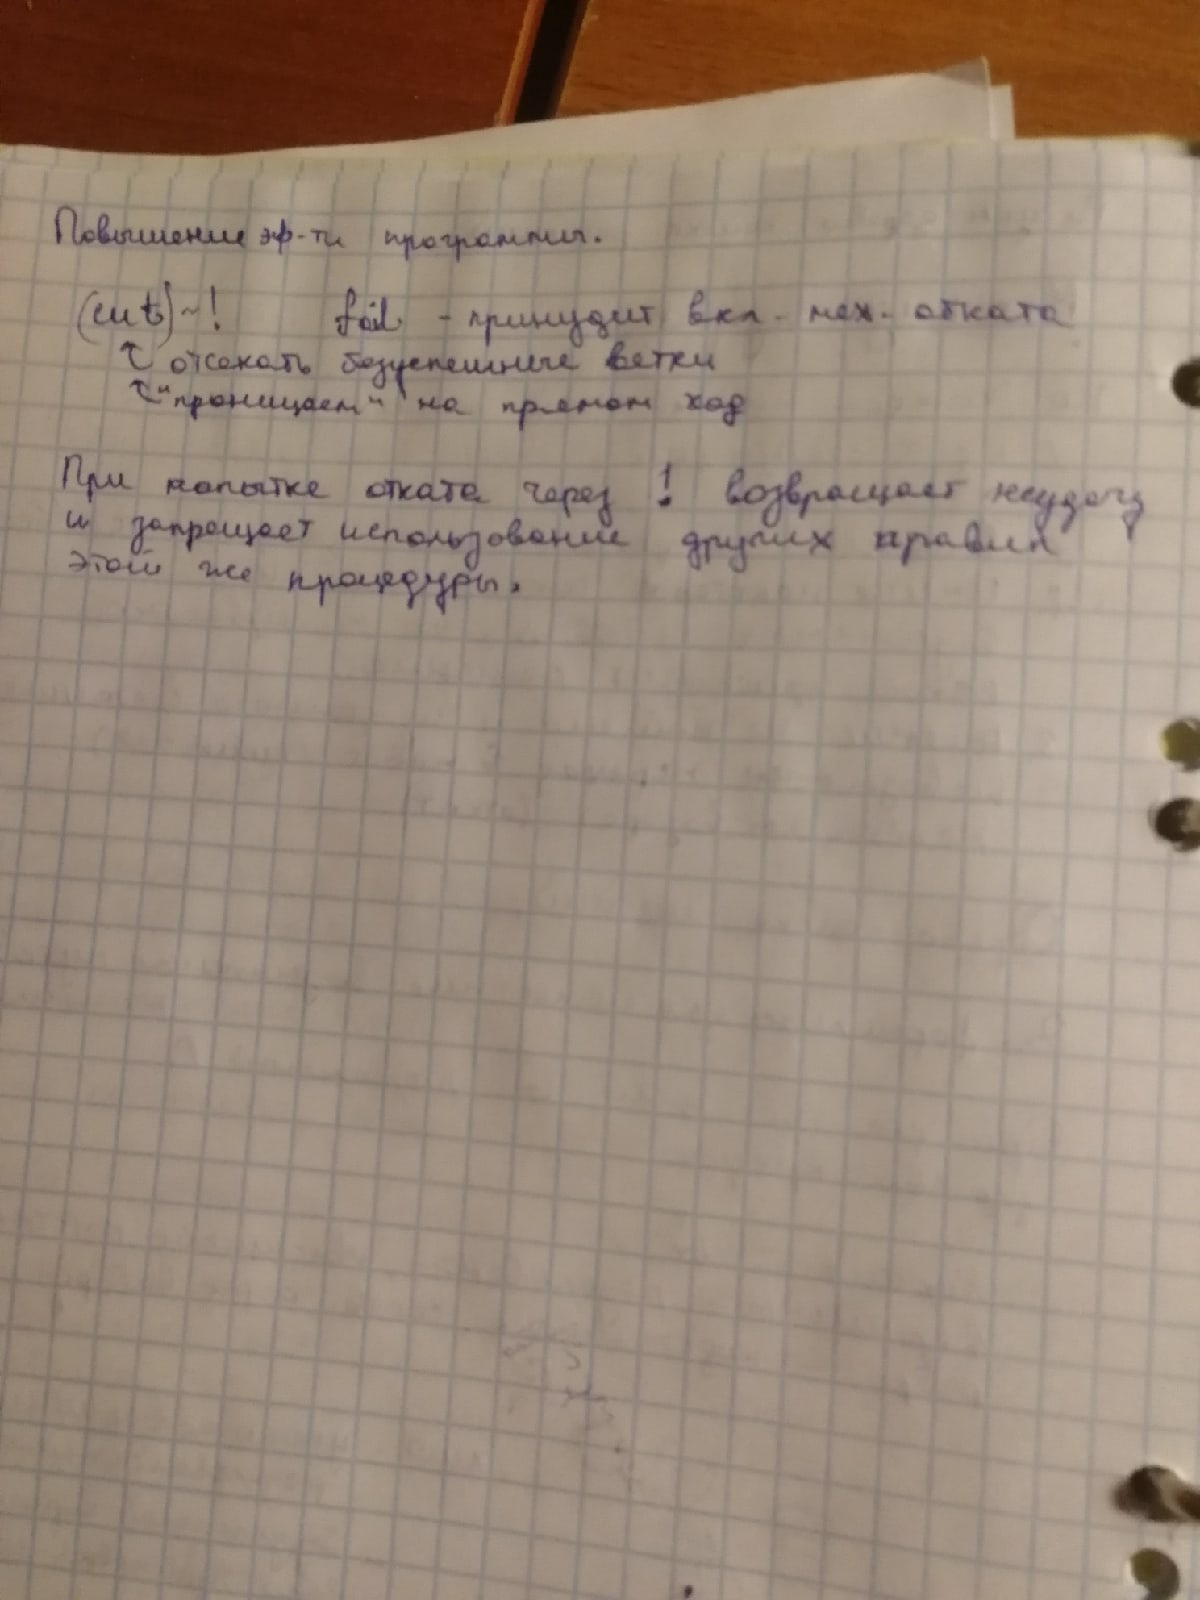 Повышение эф-ти программы.
(cut) ~ ! fail - принудит вкл. мех. отката
↖ отсекать безуспешные ветки
↖ "проницаем" на прямом ход
При попытке отката через ! возвращает неудачу
и запрещает использование других правил
этой же процедуры.